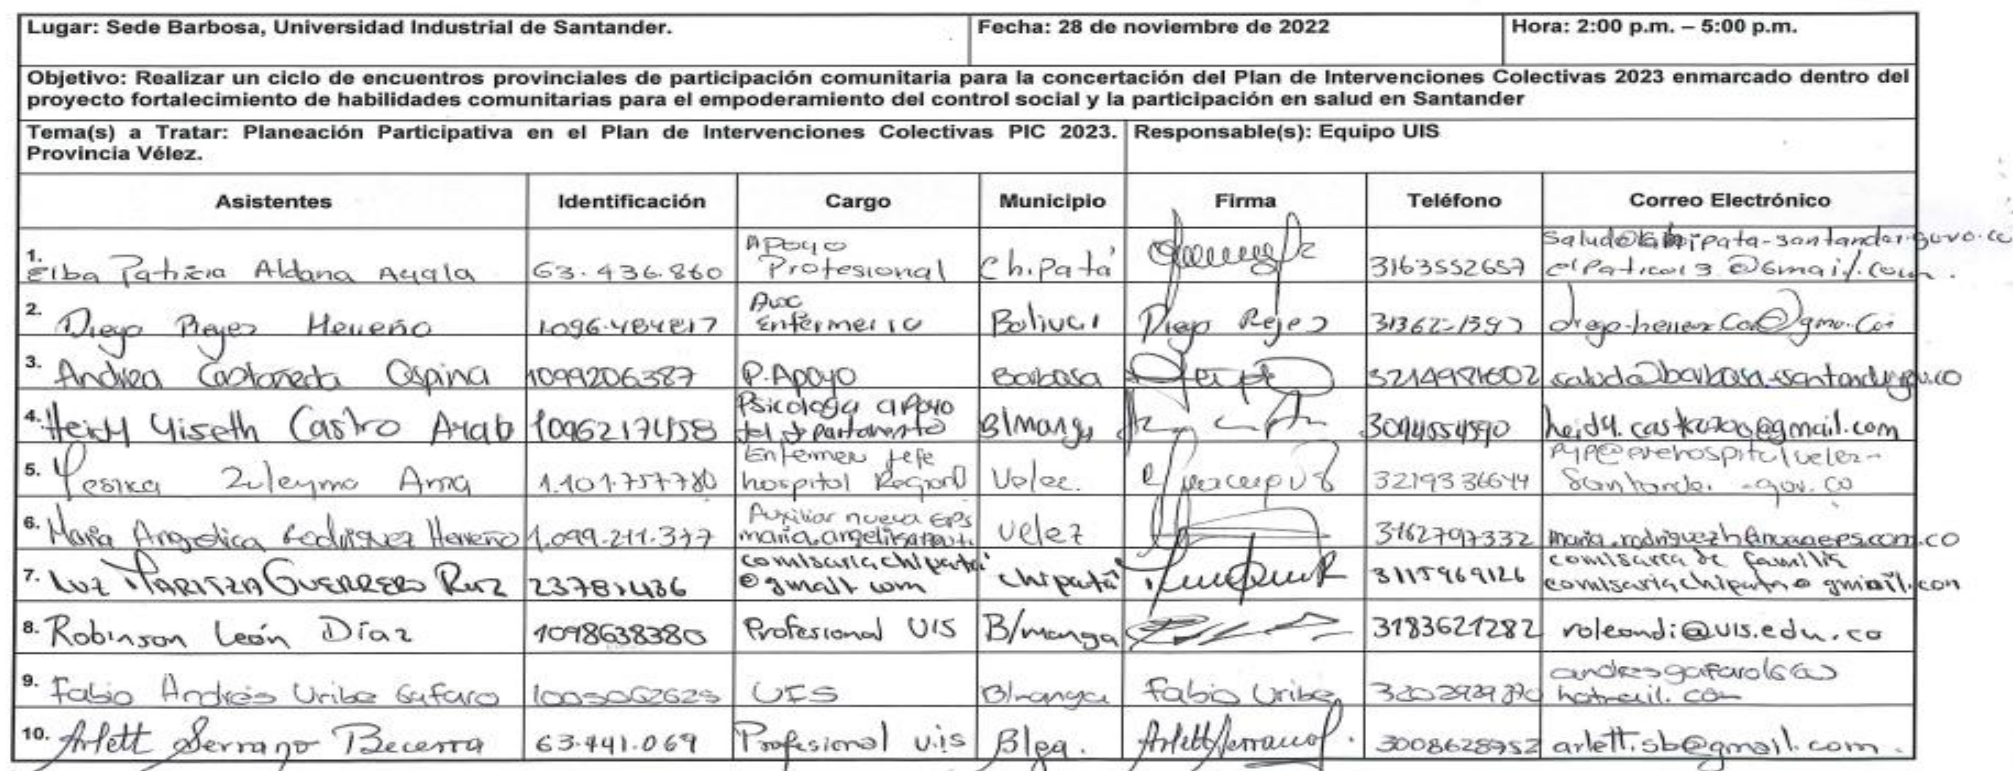 Lugar: Sede Barbosa, Universidad Industrial de Santander. Fecha: 28 de noviembre de 2022 Hora: 2:00 p.m. – 5:00 p.m.
Objetivo: Realizar un ciclo de encuentros provinciales de participación comunitaria para la concertación del Plan de Intervenciones Colectivas 2023 enmarcado dentro del
proyecto fortalecimiento de habilidades comunitarias para el empoderamiento del control social y la participación en salud en Santander
Tema(s) a Tratar: Planeación Participativa en el Plan de Intervenciones Colectivas PIC 2023. Responsable(s): Equipo UIS
Provincia Vélez.
Asistentes Identificación Cargo Municipio Firma Teléfono Correo Electrónico
1. Elba Patricia Aldana Ayala 63.436.860 Apoyo Profesional Chipatá 3163552657
2. Diego Reyez Herreño 1096.484817 Enfermeria Bolivar Diego Rejes
3. Andrea Castañeda Ospina 1099206387 P. Apoyo Barbosa
4. Heidy Yiseth Castro 1096217458 Psicologa apoyo del departamento B/manga 3094554590
5. Yesika Zuleyma 1.101.757.780 Enfermera jefe hospital Regional Velez. 3219336644
6. Maria Angelica Rodriguez Herreño 1.099.211.377 Auxiliar nueva EPS Velez 3162797332 maria.rodriguezh@nuevaeps.com.co
7. Luz Maritza Guerrero Ruiz 23781436 comisariachipata@gmail.com chipatá 3115969126 comisaria de familia comisariachipata@gmail.com
8. Robinson León Díaz 1098638380 Profesional UIS B/manga 3183621282 roleondi@uis.edu.co
9. Fabio Andrés Uribe Gafaro 1005062625 UIS B/manga Fabio Uribe
10. Arlett Serrano Becerra 63.441.069 Profesional u.is Blga. Arlett Serrano 3008628952 arlett.sb@gmail.com.